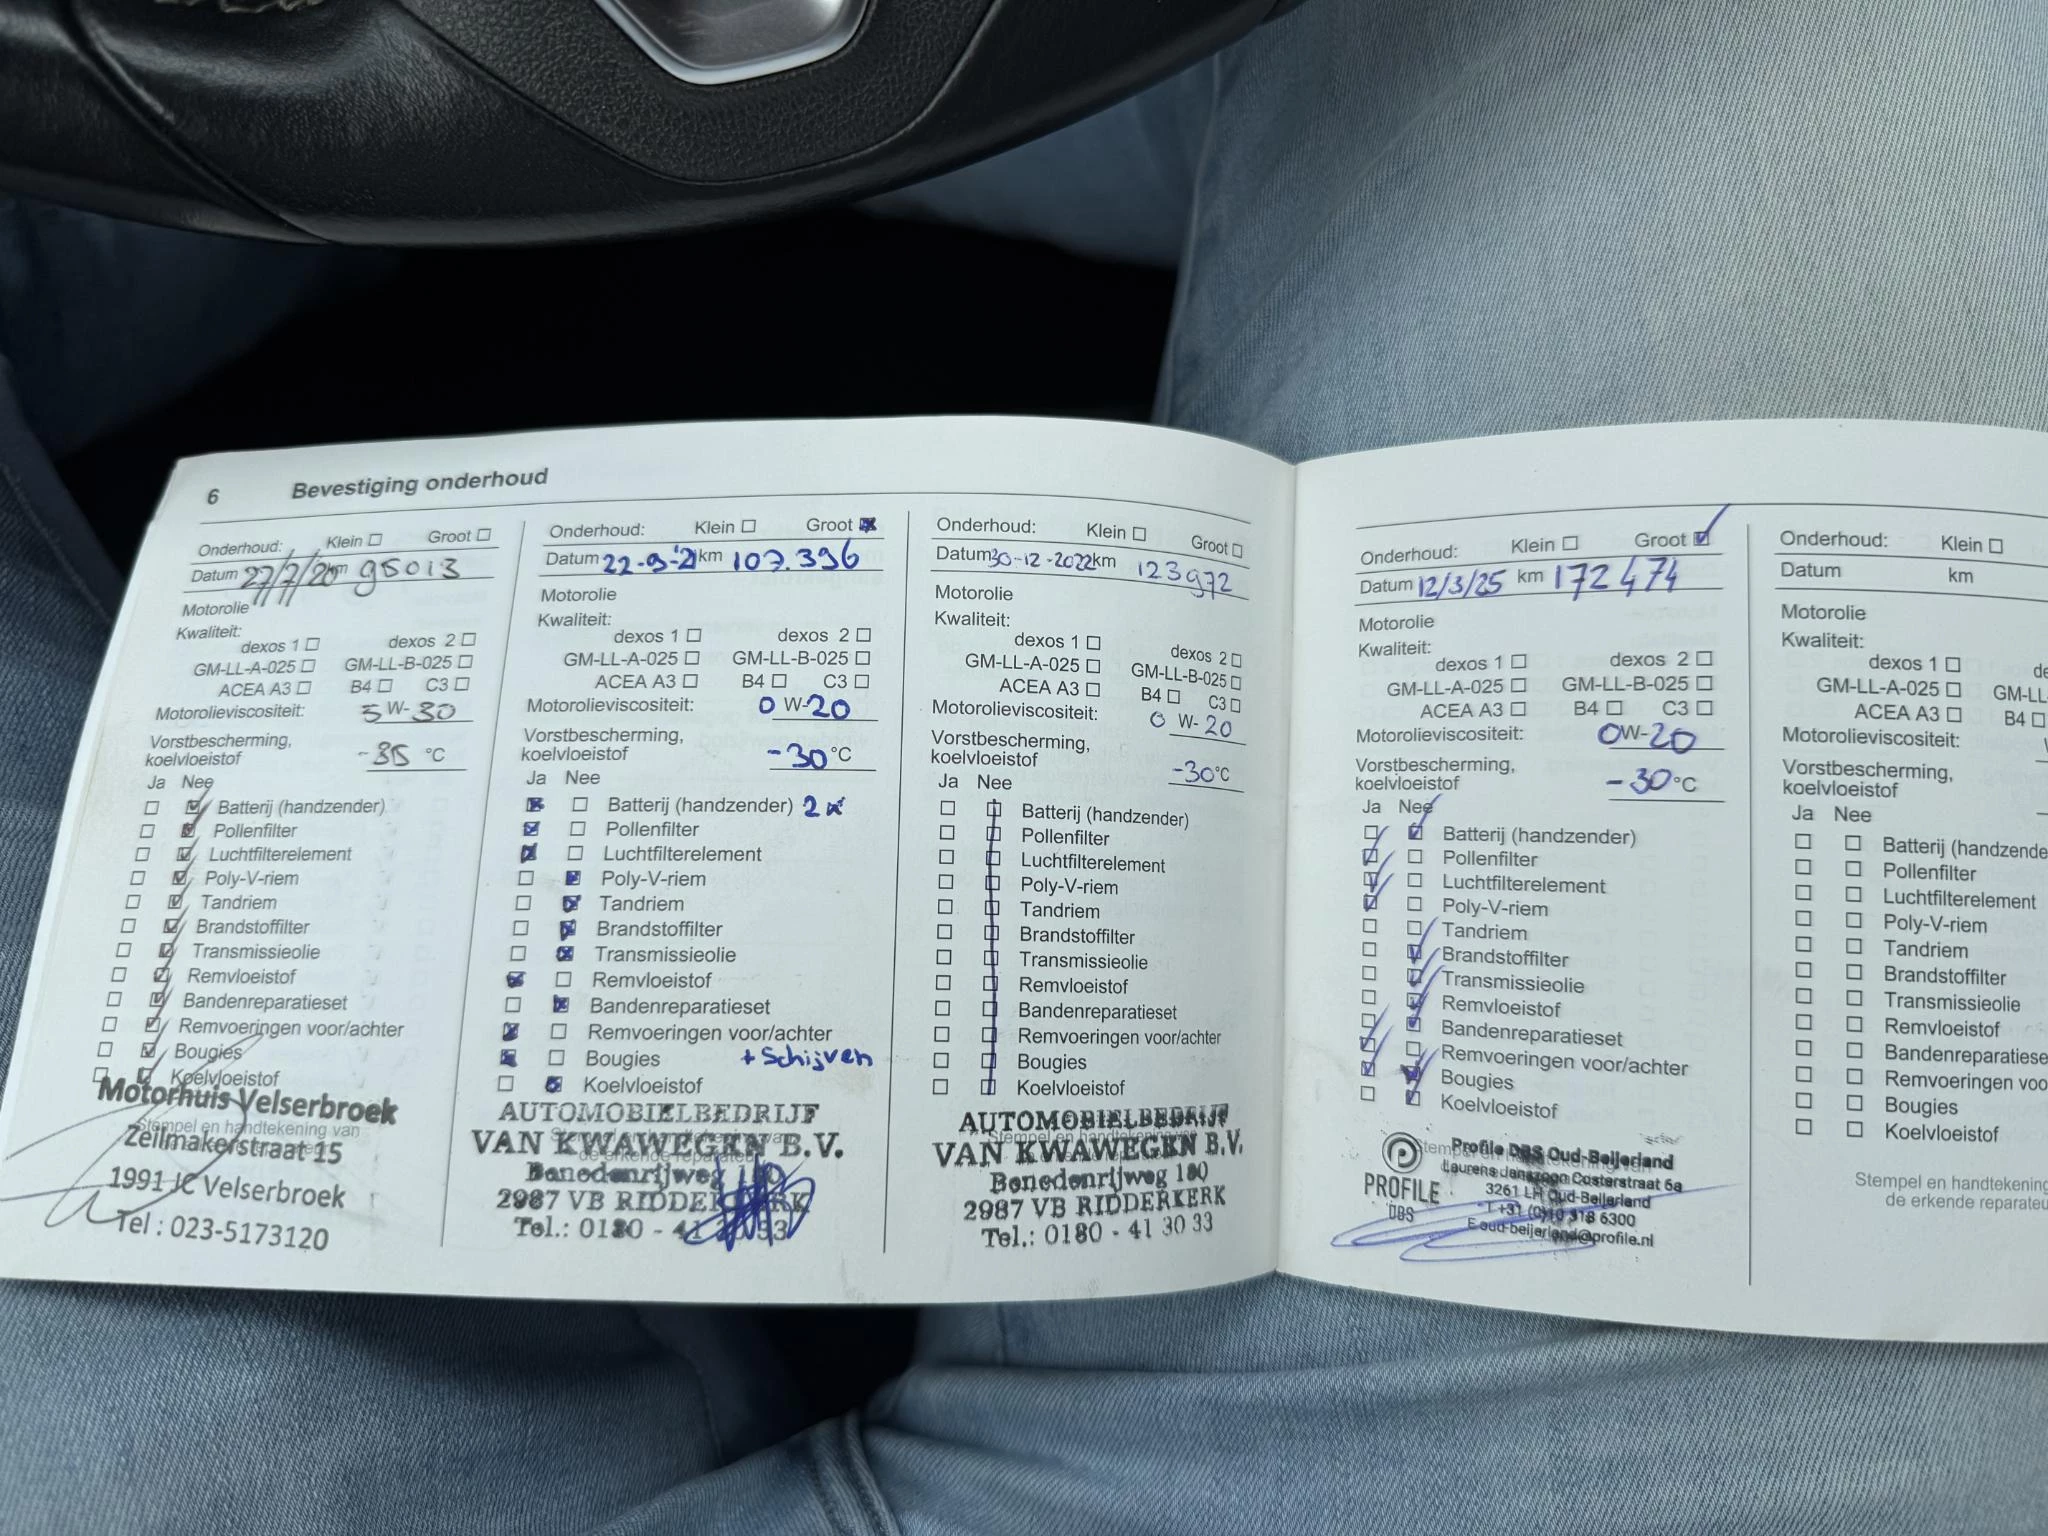 6 Bevestiging onderhoud
Onderhoud: Klein Groot
Datum 27/7/20 km 95013
Motorolie
Kwaliteit:
dexos 1 dexos 2
GM-LL-A-025 GM-LL-B-025
ACEA A3 B4 C3
Motorolieviscositeit: 5 W-30
Vorstbescherming,
koelvloeistof -35 °C
Ja Nee
Batterij (handzender)
Pollenfilter
Luchtfilterelement
Poly-V-riem
Tandriem
Brandstoffilter
Transmissieolie
Remvloeistof
Bandenreparatieset
Remvoeringen voor/achter
Bougies
Koelvloeistof
Motorhuis Velserbroek
Stempel en handtekening van
Zeilmakerstraat 15
1991 JC Velserbroek
Tel : 023-5173120
Onderhoud: Klein Groot
Datum 22-9-'21 km 107.396
Motorolie
Kwaliteit:
dexos 1 dexos 2
GM-LL-A-025 GM-LL-B-025
ACEA A3 B4 C3
Motorolieviscositeit: 0 W-20
Vorstbescherming,
koelvloeistof -30 °C
Ja Nee
Batterij (handzender) 2x
Pollenfilter
Luchtfilterelement
Poly-V-riem
Tandriem
Brandstoffilter
Transmissieolie
Remvloeistof
Bandenreparatieset
Remvoeringen voor/achter
Bougies + Schijven
Koelvloeistof
AUTOMOBIELBEDRIJF
Stempel en handtekening van
VAN KWAWEGEN B.V.
de erkende reparateur
Benedenrijweg 180
2987 VB RIDDERKERK
Tel.: 0180 - 41 30 33
Onderhoud: Klein Groot
Datum 30-12-2022 km 123972
Motorolie
Kwaliteit:
dexos 1 dexos 2
GM-LL-A-025 GM-LL-B-025
ACEA A3 B4 C3
Motorolieviscositeit: 0 W-20
Vorstbescherming,
koelvloeistof -30 °C
Ja Nee
Batterij (handzender)
Pollenfilter
Luchtfilterelement
Poly-V-riem
Tandriem
Brandstoffilter
Transmissieolie
Remvloeistof
Bandenreparatieset
Remvoeringen voor/achter
Bougies
Koelvloeistof
AUTOMOBIELBEDRIJF
Stempel en handtekening van
VAN KWAWEGEN B.V.
Benedenrijweg 180
2987 VB RIDDERKERK
Tel.: 0180 - 41 30 33
Onderhoud: Klein Groot
Datum 12/3/25 km 172474
Motorolie
Kwaliteit:
dexos 1 dexos 2
GM-LL-A-025 GM-LL-B-025
ACEA A3 B4 C3
Motorolieviscositeit: 0W-20
Vorstbescherming,
koelvloeistof -30 °C
Ja Nee
Batterij (handzender)
Pollenfilter
Luchtfilterelement
Poly-V-riem
Tandriem
Brandstoffilter
Transmissieolie
Remvloeistof
Bandenreparatieset
Remvoeringen voor/achter
Bougies
Koelvloeistof
PROFILE
DBS
Profile DBS Oud-Beijerland
Laurens Janszoon Costerstraat 6a
3261 LH Oud-Beijerland
T +31 (0)10 318 6300
E oud-beijerland@profile.nl
Onderhoud: Klein
Datum km
Motorolie
Kwaliteit:
dexos 1 de
GM-LL-A-025 GM-LL
ACEA A3 B4
Motorolieviscositeit:
Vorstbescherming,
koelvloeistof
Ja Nee
Batterij (handzende
Pollenfilter
Luchtfilterelement
Poly-V-riem
Tandriem
Brandstoffilter
Transmissieolie
Remvloeistof
Bandenreparatiese
Remvoeringen voo
Bougies
Koelvloeistof
Stempel en handtekening
de erkende reparateu